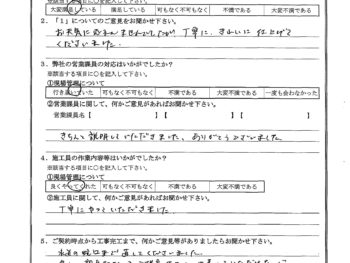 ※該当する項目に○を記入して下さい。
大変満足している 満足している 可もなく不可もなく 不満である 大変不満である
2．「1」についてのご意見をお聞かせ下さい。
丁寧に、きれいに仕上げて
くださいました。
3．弊社の営業課員の対応はいかがでしたか？
※該当する項目に○を記入して下さい。
①現場管理について
行き届いていた 可もなく不可もなく 不満である 大変不満である 一度も会わなかった
②営業課員に関して、何かご意見があればお聞かせ下さい。
営業課員名【 】【 】【 】
きちんと説明していただきました。ありがとうございました。
4．施工員の作業内容等はいかがでしたか？
※該当する項目に○を記入して下さい。
①現場管理について
良くやってくれた 可もなく不可もなく 不満である 大変不満である
②施工員に関して、何かご意見があればお聞かせ下さい。
丁寧にやっていただきました。
5．ご契約時点から工事完工まで、何かご意見等がありましたらお聞かせ下さい。